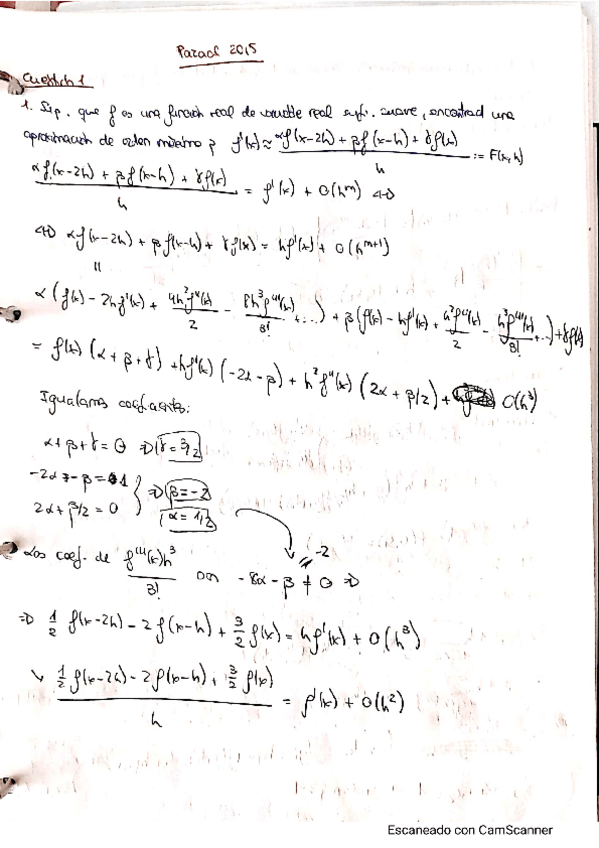 Parcial 2015
Cuestión 1
1. Sup. que f es una función real de variable real sufi. suave, encontrad una
aproximación de orden máximo p f'(x) ≈ (αf(x-2h) + βf(x-h) + γf(x))/h := F(x,h)
(αf(x-2h) + βf(x-h) + γf(x))/h = f'(x) + O(h^m) ⇔
⇔ αf(x-2h) + βf(x-h) + γf(x) = hf'(x) + O(h^{m+1})
=
α(f(x) - 2hf'(x) + 4h²f''(x)/2 - 8h³f'''(x)/3! + ...) + β(f(x) - hf'(x) + h²f''(x)/2 - h³f'''(x)/3! + ...) + γf(x)
= f(x)(α+β+γ) + hf'(x)(-2α-β) + h²f''(x)(2α+β/2) + O(h³)
Igualamos coeficientes:
α+β+γ = 0 ⇒ γ = 3/2
-2α-β = 1
⇒ β = -2
2α+β/2 = 0
α = 1/2
-2
Los coef. de f'''(x)h³/3! son -8α - β ≠ 0 ⇒
⇒ 1/2 f(x-2h) - 2f(x-h) + 3/2 f(x) = hf'(x) + O(h³)
(1/2 f(x-2h) - 2f(x-h) + 3/2 f(x))/h = f'(x) + O(h²)
Escaneado con CamScanner